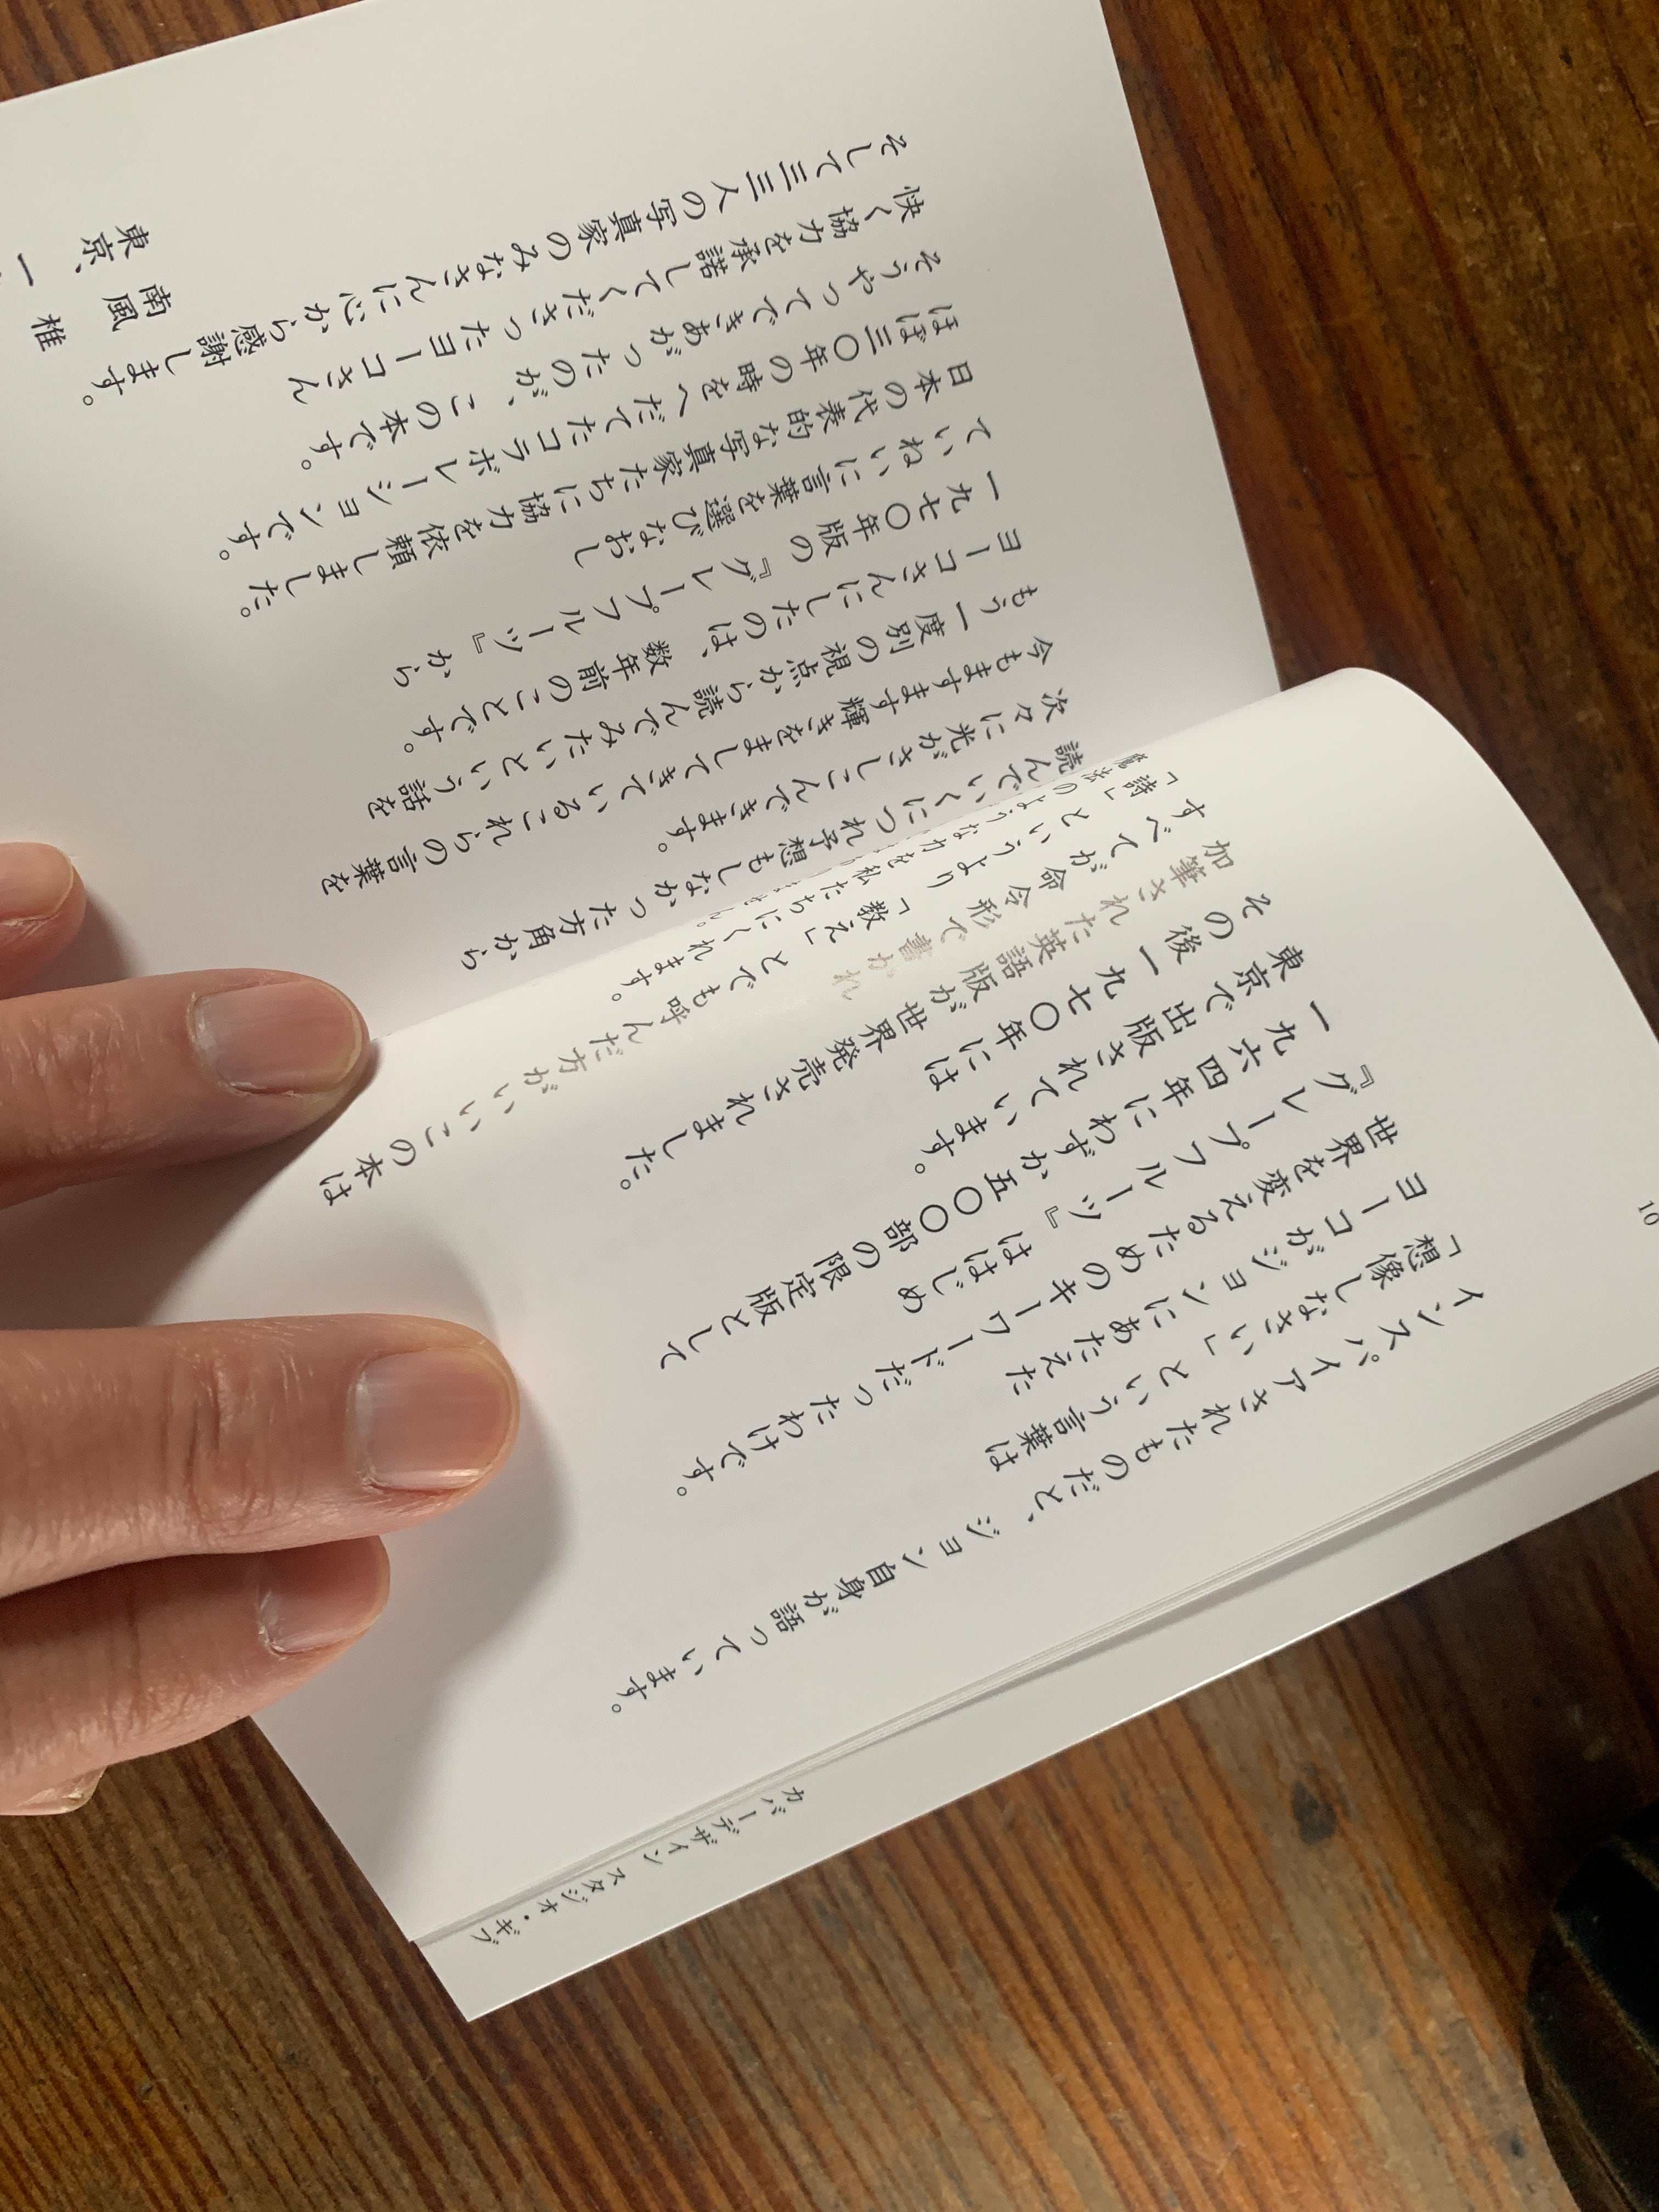 カバーデザイン スタジオ・ギブ
10
インスパイアされたものだと、ジョン自身が語っています。
「想像しなさい」という言葉は
ヨーコがジョンにあたえた
世界を変えるためのキーワードだったわけです。
『グレープフルーツ』ははじめ
一九六四年にわずか五〇〇部の限定版として
東京で出版されています。
その後一九七〇年には
加筆された英語版が世界発売されました。
すべてが命令形で書かれ
「詩」というより「教え」とでも呼んだ方がいいこの本は
魔法のような力を私たちにくれます。
読んでいくにつれ予想もしなかった方角から
次々に光がさしこんできます。
今もますます輝きをましてきているこれらの言葉を
もう一度別の視点から読んでみたいという話を
ヨーコさんにしたのは、数年前のことです。
一九七〇年版の『グレープフルーツ』から
ていねいに言葉を選びなおし
日本の代表的な写真家たちに協力を依頼しました。
ほぼ三〇年の時をへだてたコラボレーションです。
そうやってできあがったのが、この本です。
快く協力を承諾してくださったヨーコさん
そして三三人の写真家のみなさんに心から感謝します。
南風椎
東京、一